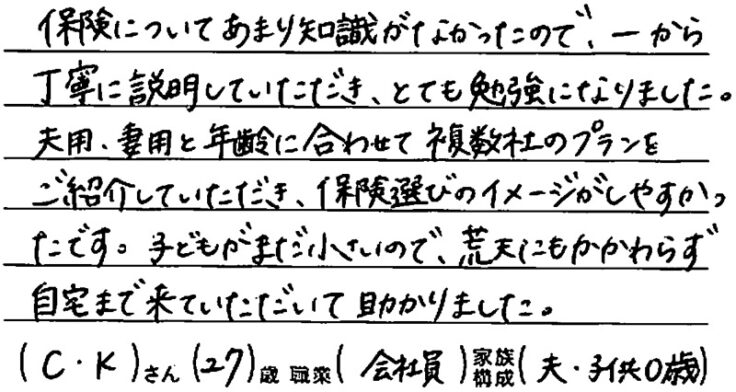 保険についてあまり知識がなかったので、一から
丁寧に説明していただき、とても勉強になりました。
夫用、妻用と年齢に合わせて複数社のプランを
ご紹介していただき、保険選びのイメージがしやすかっ
たです。子どもがまだ小さいので、荒天にもかかわらず
自宅まで来ていただいて助かりました。
(C・K)さん (27)歳 職業(会社員)家族構成(夫・子供0歳)